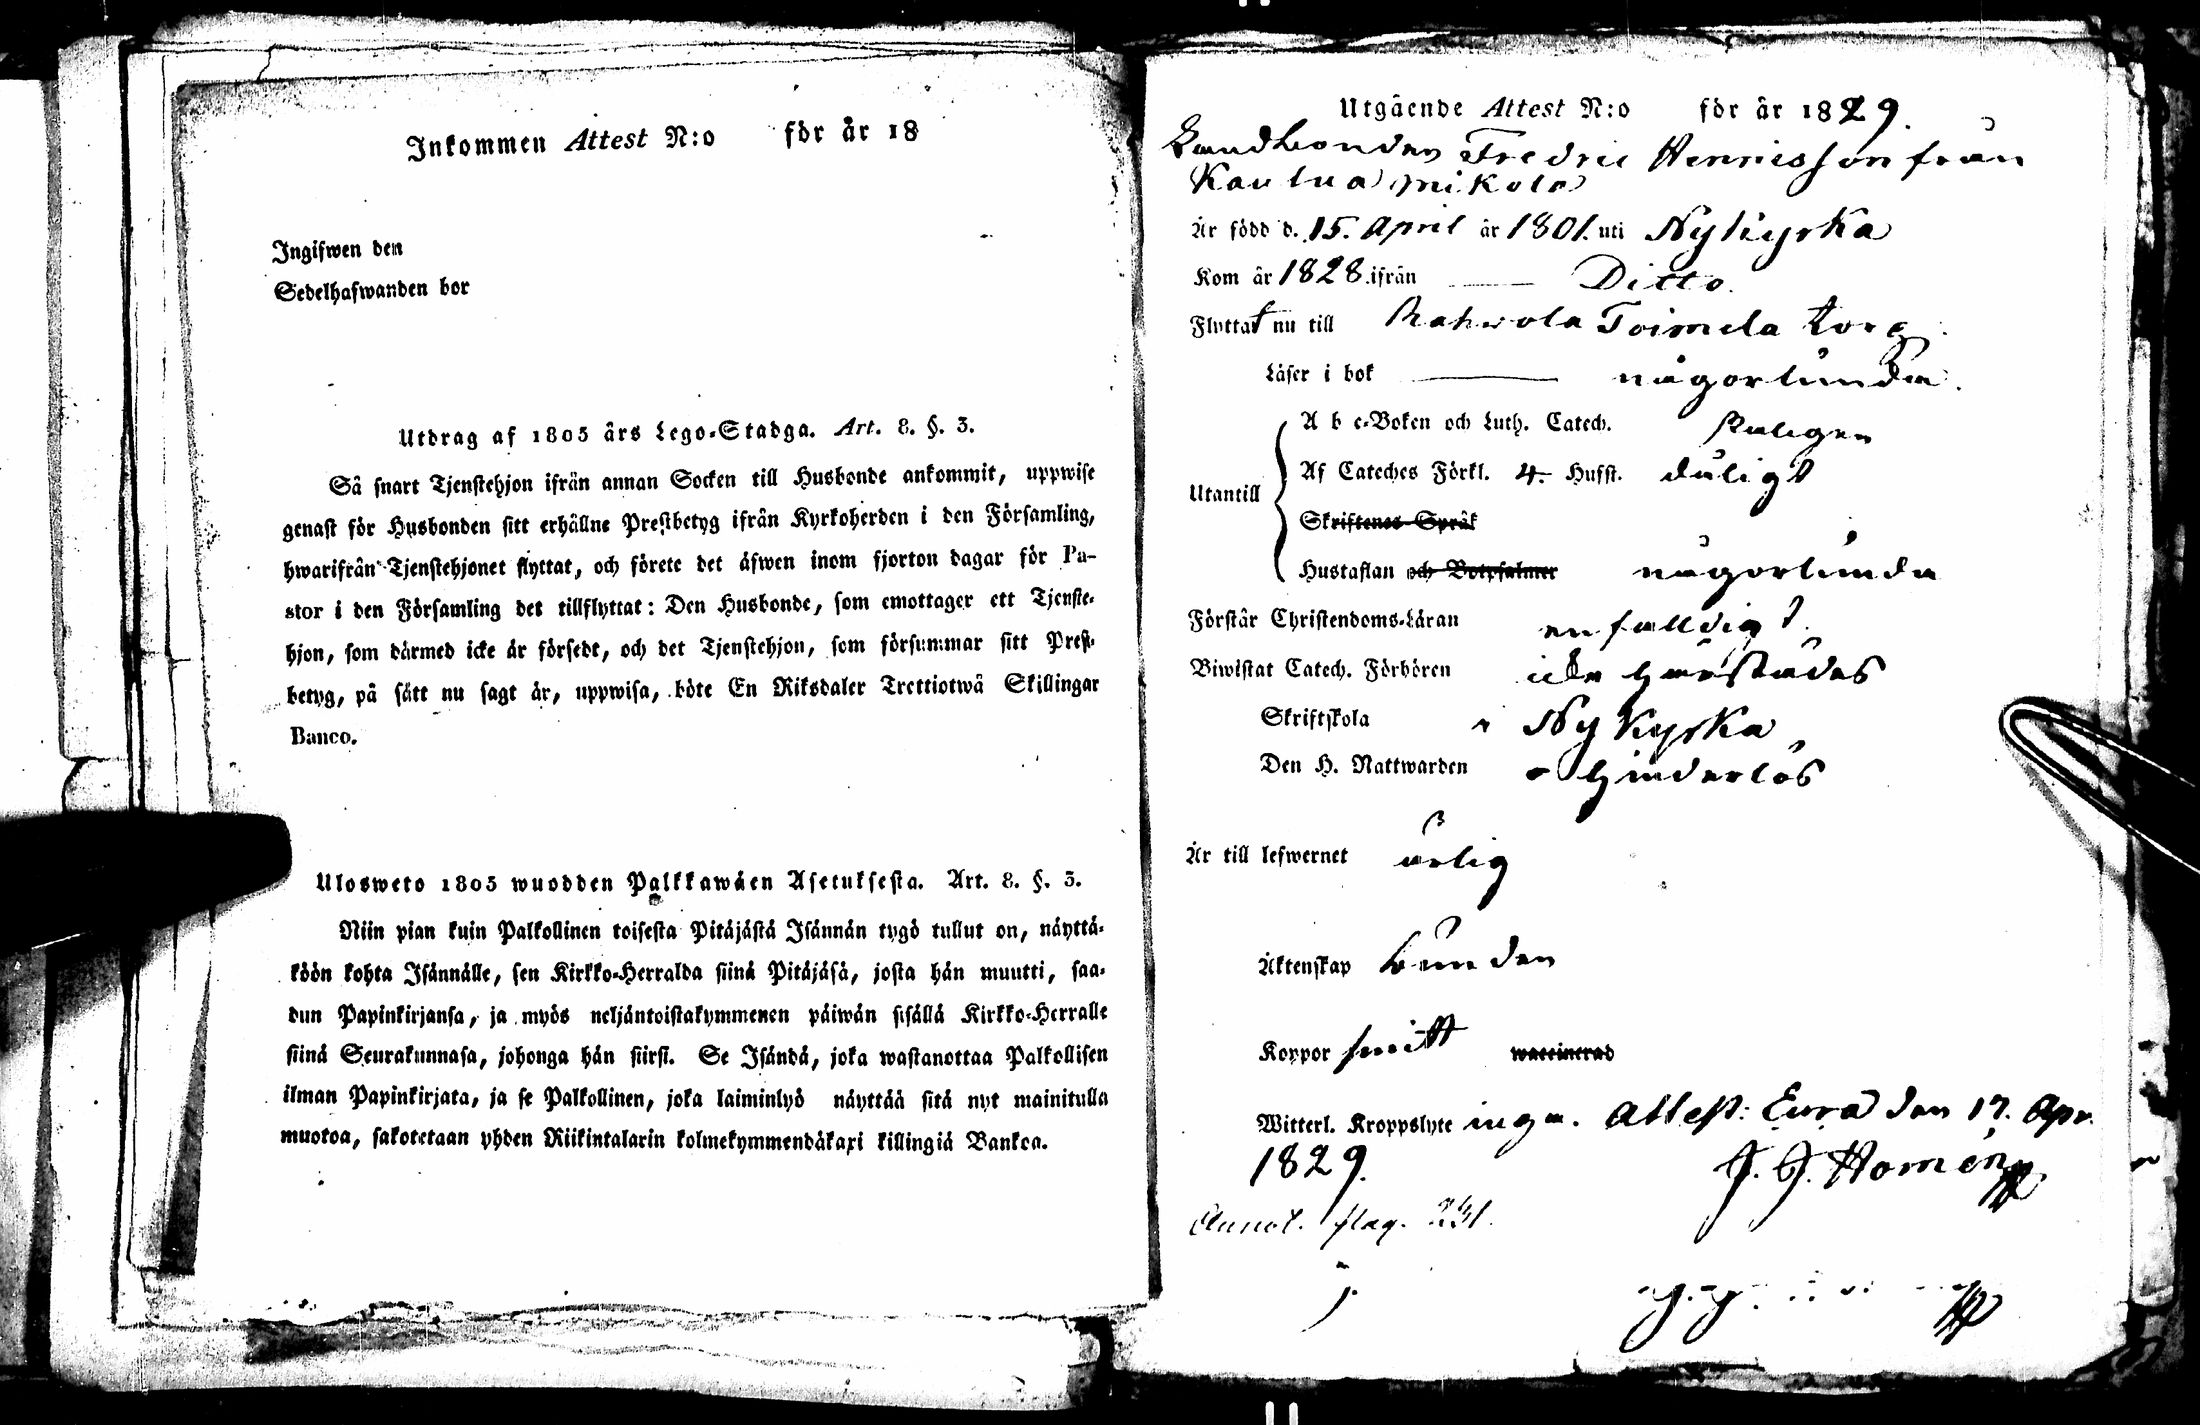 Inkommen Attest N:o för år 18
Ingifwen den
Sedelhafwanden bor
Utdrag af 1805 års Lego-Stadga. Art. 8. §. 3.
Så snart Tjenstehjon ifrån annan Socken till Husbonde ankommit, uppwise
genast för Husbonden sitt erhållne Prestbetyg ifrån Kyrkoherden i den Församling,
hwarifrån Tjenstehjonet flyttat, och förete det äfwen inom fjorton dagar för Pa-
stor i den Församling det tillflyttat: Den Husbonde, som emottager ett Tjenste-
hjon, som därmed icke är försedt, och det Tjenstehjon, som försummar sitt Prest-
betyg, på sätt nu sagt är, uppwisa, böte En Riksdaler Trettiotwå Skillingar
Banco.
Ulosweto 1805 wuodden Palkkawäen Asetuksesta. Art. 8. §. 3.
Niin pian kuin Palkollinen toisesta Pitäjästä Isännän tygö tullut on, näyttä-
köön kohta Isännälle, sen Kirkko-Herralda siinä Pitäjäsä, josta hän muutti, saa-
dun Papinkirjansa, ja myös neljäntoistakymmenen päiwän sisällä Kirkko-Herralle
siinä Seurakunnasa, johonga hän siirsi. Se Isändä, joka wastanottaa Palkollisen
ilman Papinkirjata, ja se Palkollinen, joka laiminlyö näyttää sitä nyt mainitulla
muotoa, sakotetaan yhden Riikintalarin kolmekymmendäkaxi killingiä Bankoa.
Utgående Attest N:o för år 1829.
Landbonden Fredric Henricsson från
Kautua Mikola
Är född d. 15. April år 1801. uti Nykyrka
Kom år 1828. ifrån Ditto.
Flyttat nu till Rahwola Toimela torp.
Läser i bok någorlunda.
A b c-Boken och Luth. Catech.
Af Cateches Förkl. 4. Hufst. duligt
Utantill
Skriftenes Språk
Hustaflan och Botpsalmer någorlunda
Förstår Christendoms-Läran enfaldigt.
Biwistat Catech. Förhören icke härstädes
Skriftskola i Nykyrka
Den H. Nattwarden hinderlös
Är till lefwernet ärlig
Äktenskap bunden
Koppor haft waccinerad
Witterl. Kroppslyte inga. Attest: Eura den 17. Apr.
1829. J. J. Homén
Annot. pag. 231.